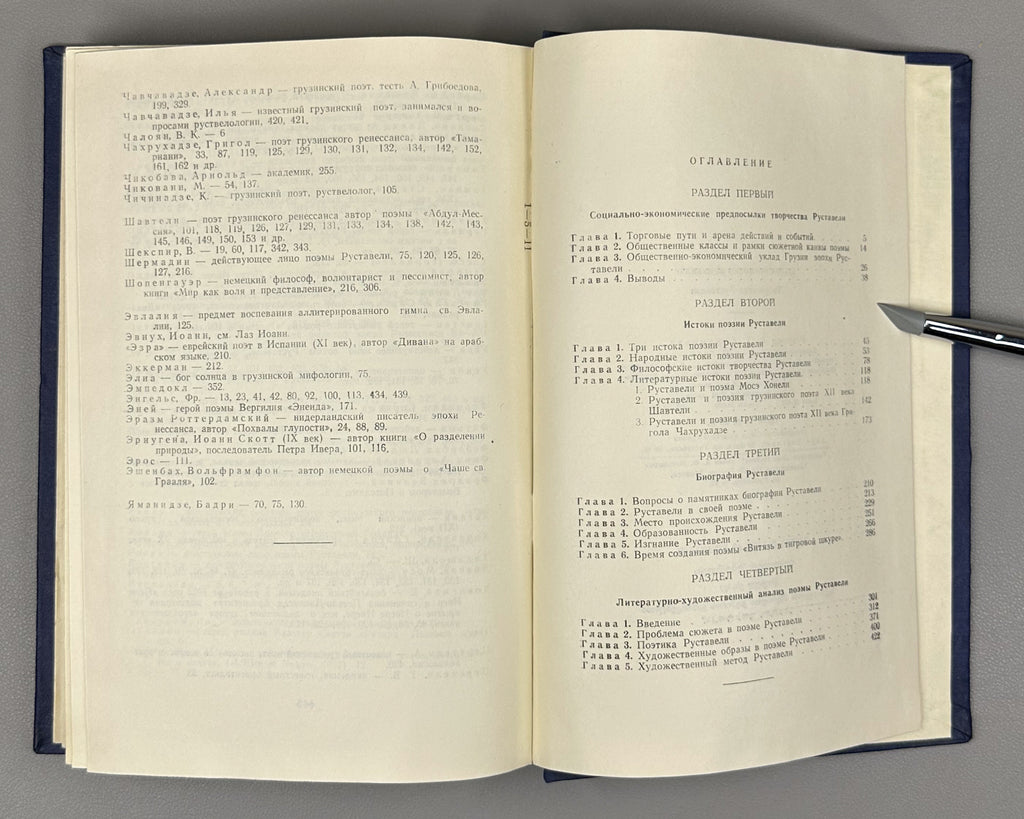 Чавчавадзе, Александр — грузинский поэт, тесть А. Грибоедова,
199, 329.
Чавчавадзе, Илья — известный грузинский поэт, занимался и во-
просами руствелологии, 420, 421.
Чалоян, В. К. — 6
Чахрухадзе, Григол — поэт грузинского ренессанса, автор «Тама-
риани», 33, 87, 119, 125, 129, 130, 131, 132, 134, 142, 152,
161, 162 и др.
Чикобава, Арнольд — академик, 255.
Чиковани, М. — 54, 137.
Чичинадзе, К. — грузинский поэт, руствелолог, 105.
Шавтели — поэт грузинского ренессанса автор поэмы «Абдул-Мес-
сия», 101, 118, 119, 126, 127, 129, 131, 133, 134, 138, 142, 143,
145, 146, 149, 150, 153 и др.
Шекспир, В. — 19, 60, 117, 342, 343.
Шермадин — действующее лицо поэмы Руставели, 75, 120, 125, 126,
127, 216.
Шопенгауэр — немецкий философ, волюнтарист и пессимист, автор
книги «Мир как воля и представление», 216, 306.
Эвлалия — предмет воспевания аллитерированного гимна св. Эвла-
лии, 125.
Эвнух, Иоанн, см. Лаз Иоанн.
«Эзра» — еврейский поэт в Испании (XI век), автор «Дивана» на араб-
ском языке, 210.
Эккерман — 212.
Элиа — бог солнца в грузинской мифологии, 75.
Эмпедокл — 352.
Энгельс, Фр. — 13, 23, 41, 42, 80, 92, 100, 113, 434, 439.
Эней — герой поэмы Вергилия «Энеида», 171.
Эразм Роттердамский — нидерландский писатель эпохи Ре-
нессанса, автор «Похвалы глупости», 24, 88, 89.
Эриугена, Иоанн Скотт (IX век) — автор книги «О разделении
природы», последователь Петра Ивера, 101, 116.
Эрос — 111.
Эшенбах, Вольфрам фон — автор немецкой поэмы о «Чаше св.
Грааля», 102.
Яманидзе, Бадри — 70, 75, 130.
ОГЛАВЛЕНИЕ
РАЗДЕЛ ПЕРВЫЙ
Социально-экономические предпосылки творчества Руставели
Глава 1. Торговые пути и арена действий и событий . 5
Глава 2. Общественные классы и рамки сюжетной канвы поэмы 14
Глава 3. Общественно-экономический уклад Грузии эпохи Рус-
тавели . . . 26
Глава 4. Выводы . . . 38
РАЗДЕЛ ВТОРОЙ
Истоки поэзии Руставели
Глава 1. Три истока поэзии Руставели . . . 45
Глава 2. Народные истоки поэзии Руставели . . . 53
Глава 3. Философские истоки творчества Руставели . . . 78
Глава 4. Литературные истоки поэзии Руставели. . . 118
1. Руставели и поэма Мосэ Хонели . . . 118
2. Руставели и поэзия грузинского поэта XII века
Шавтели . . . 142
3. Руставели и поэзия грузинского поэта XII века Гри-
гола Чахрухадзе . . . 173
РАЗДЕЛ ТРЕТИЙ
Биография Руставели
Глава 1. Вопросы о памятниках биографии Руставели . . . 210
Глава 2. Руставели в своей поэме . . . 213
Глава 3. Место происхождения Руставели . . . 229
Глава 4. Образованность Руставели . . . 251
Глава 5. Изгнание Руставели . . . 266
Глава 6. Время создания поэмы «Витязь в тигровой шкуре». . 286
РАЗДЕЛ ЧЕТВЕРТЫЙ
Литературно-художественный анализ поэмы Руставели
Глава 1. Введение . . . 301
Глава 2. Проблема сюжета в поэме Руставели . . . 312
Глава 3. Поэтика Руставели . . . 371
Глава 4. Художественные образы в поэме Руставели . . . 400
Глава 5. Художественный метод Руставели . . . 422